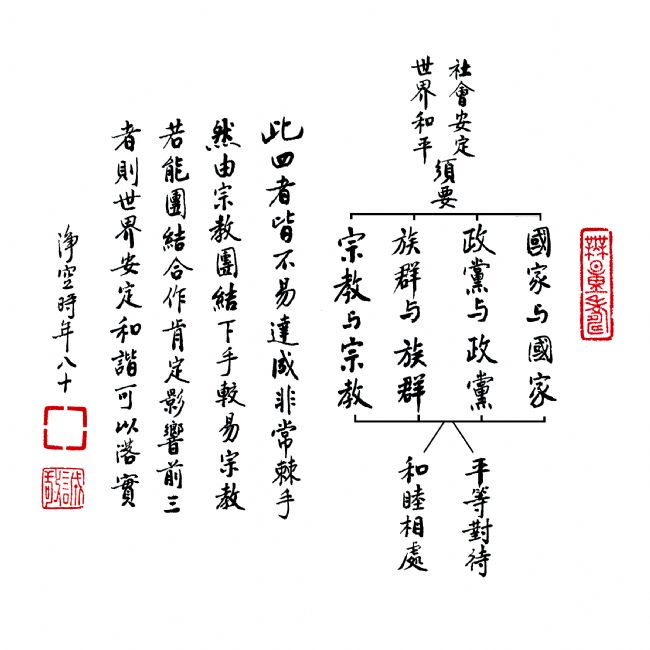 社會安定
世界和平
須要
國家与國家
政黨与政黨
族群与族群
宗教与宗教
平等對待
和睦相處
此四者皆不易達成非常棘手
然由宗教團結下手較易宗教
若能團結合作肯定影響前三
者則世界安定和諧可以落實
淨空時年八十